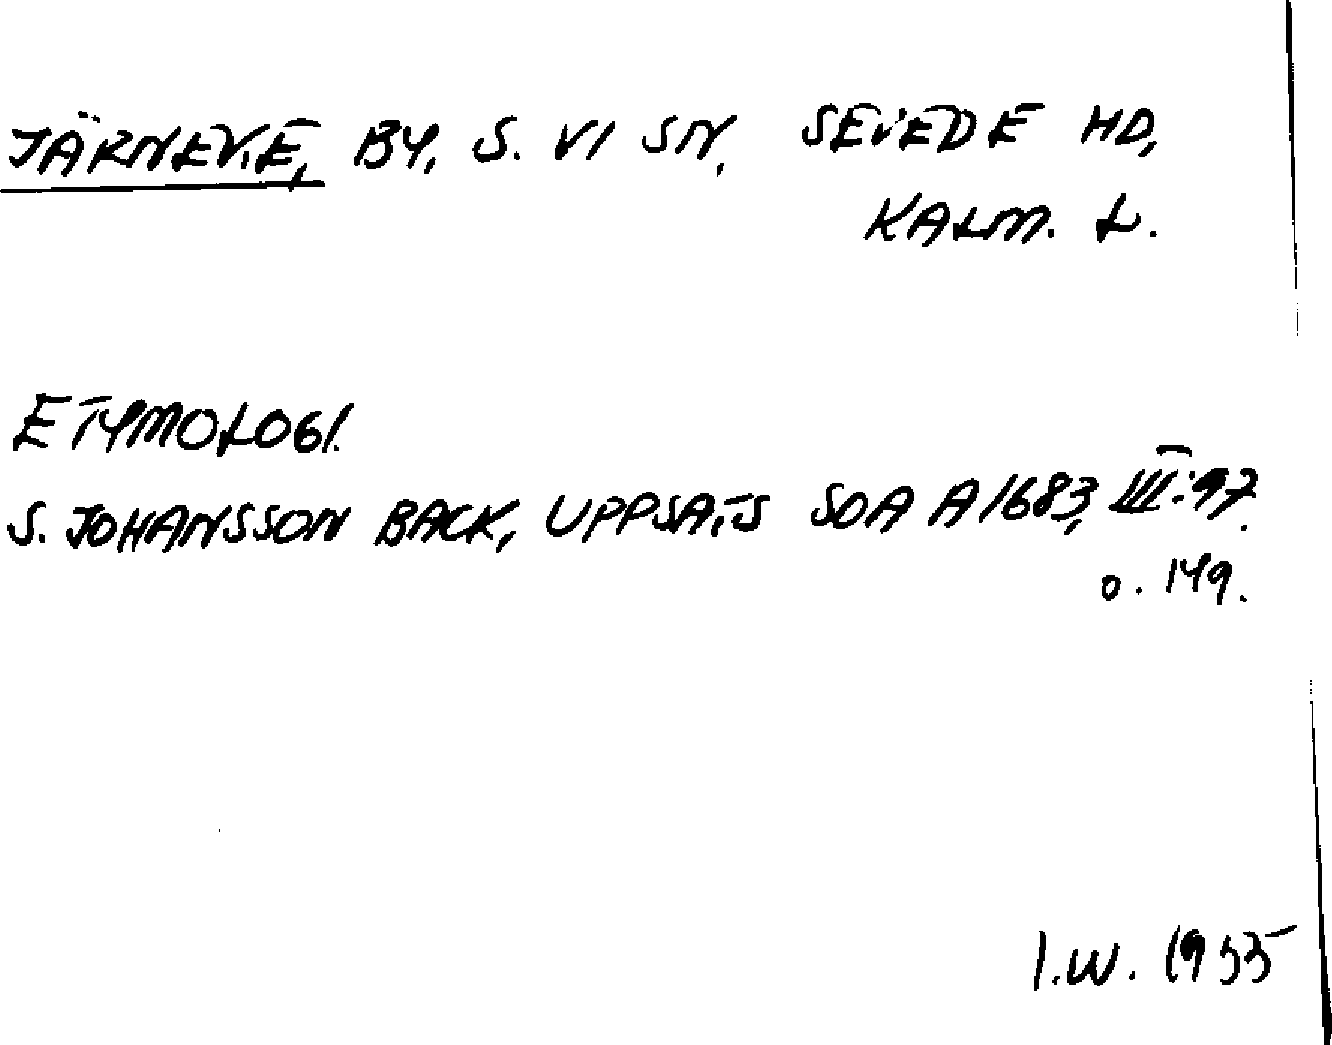 JÄRNEVE, BY, S. VI SN, SEVEDE HD,
KALM. L.
ETYMOLOGI.
S. JOHANSSON BACK, UPPSATS SOA A1683, III:97.
o. 149.
I.W. 1955